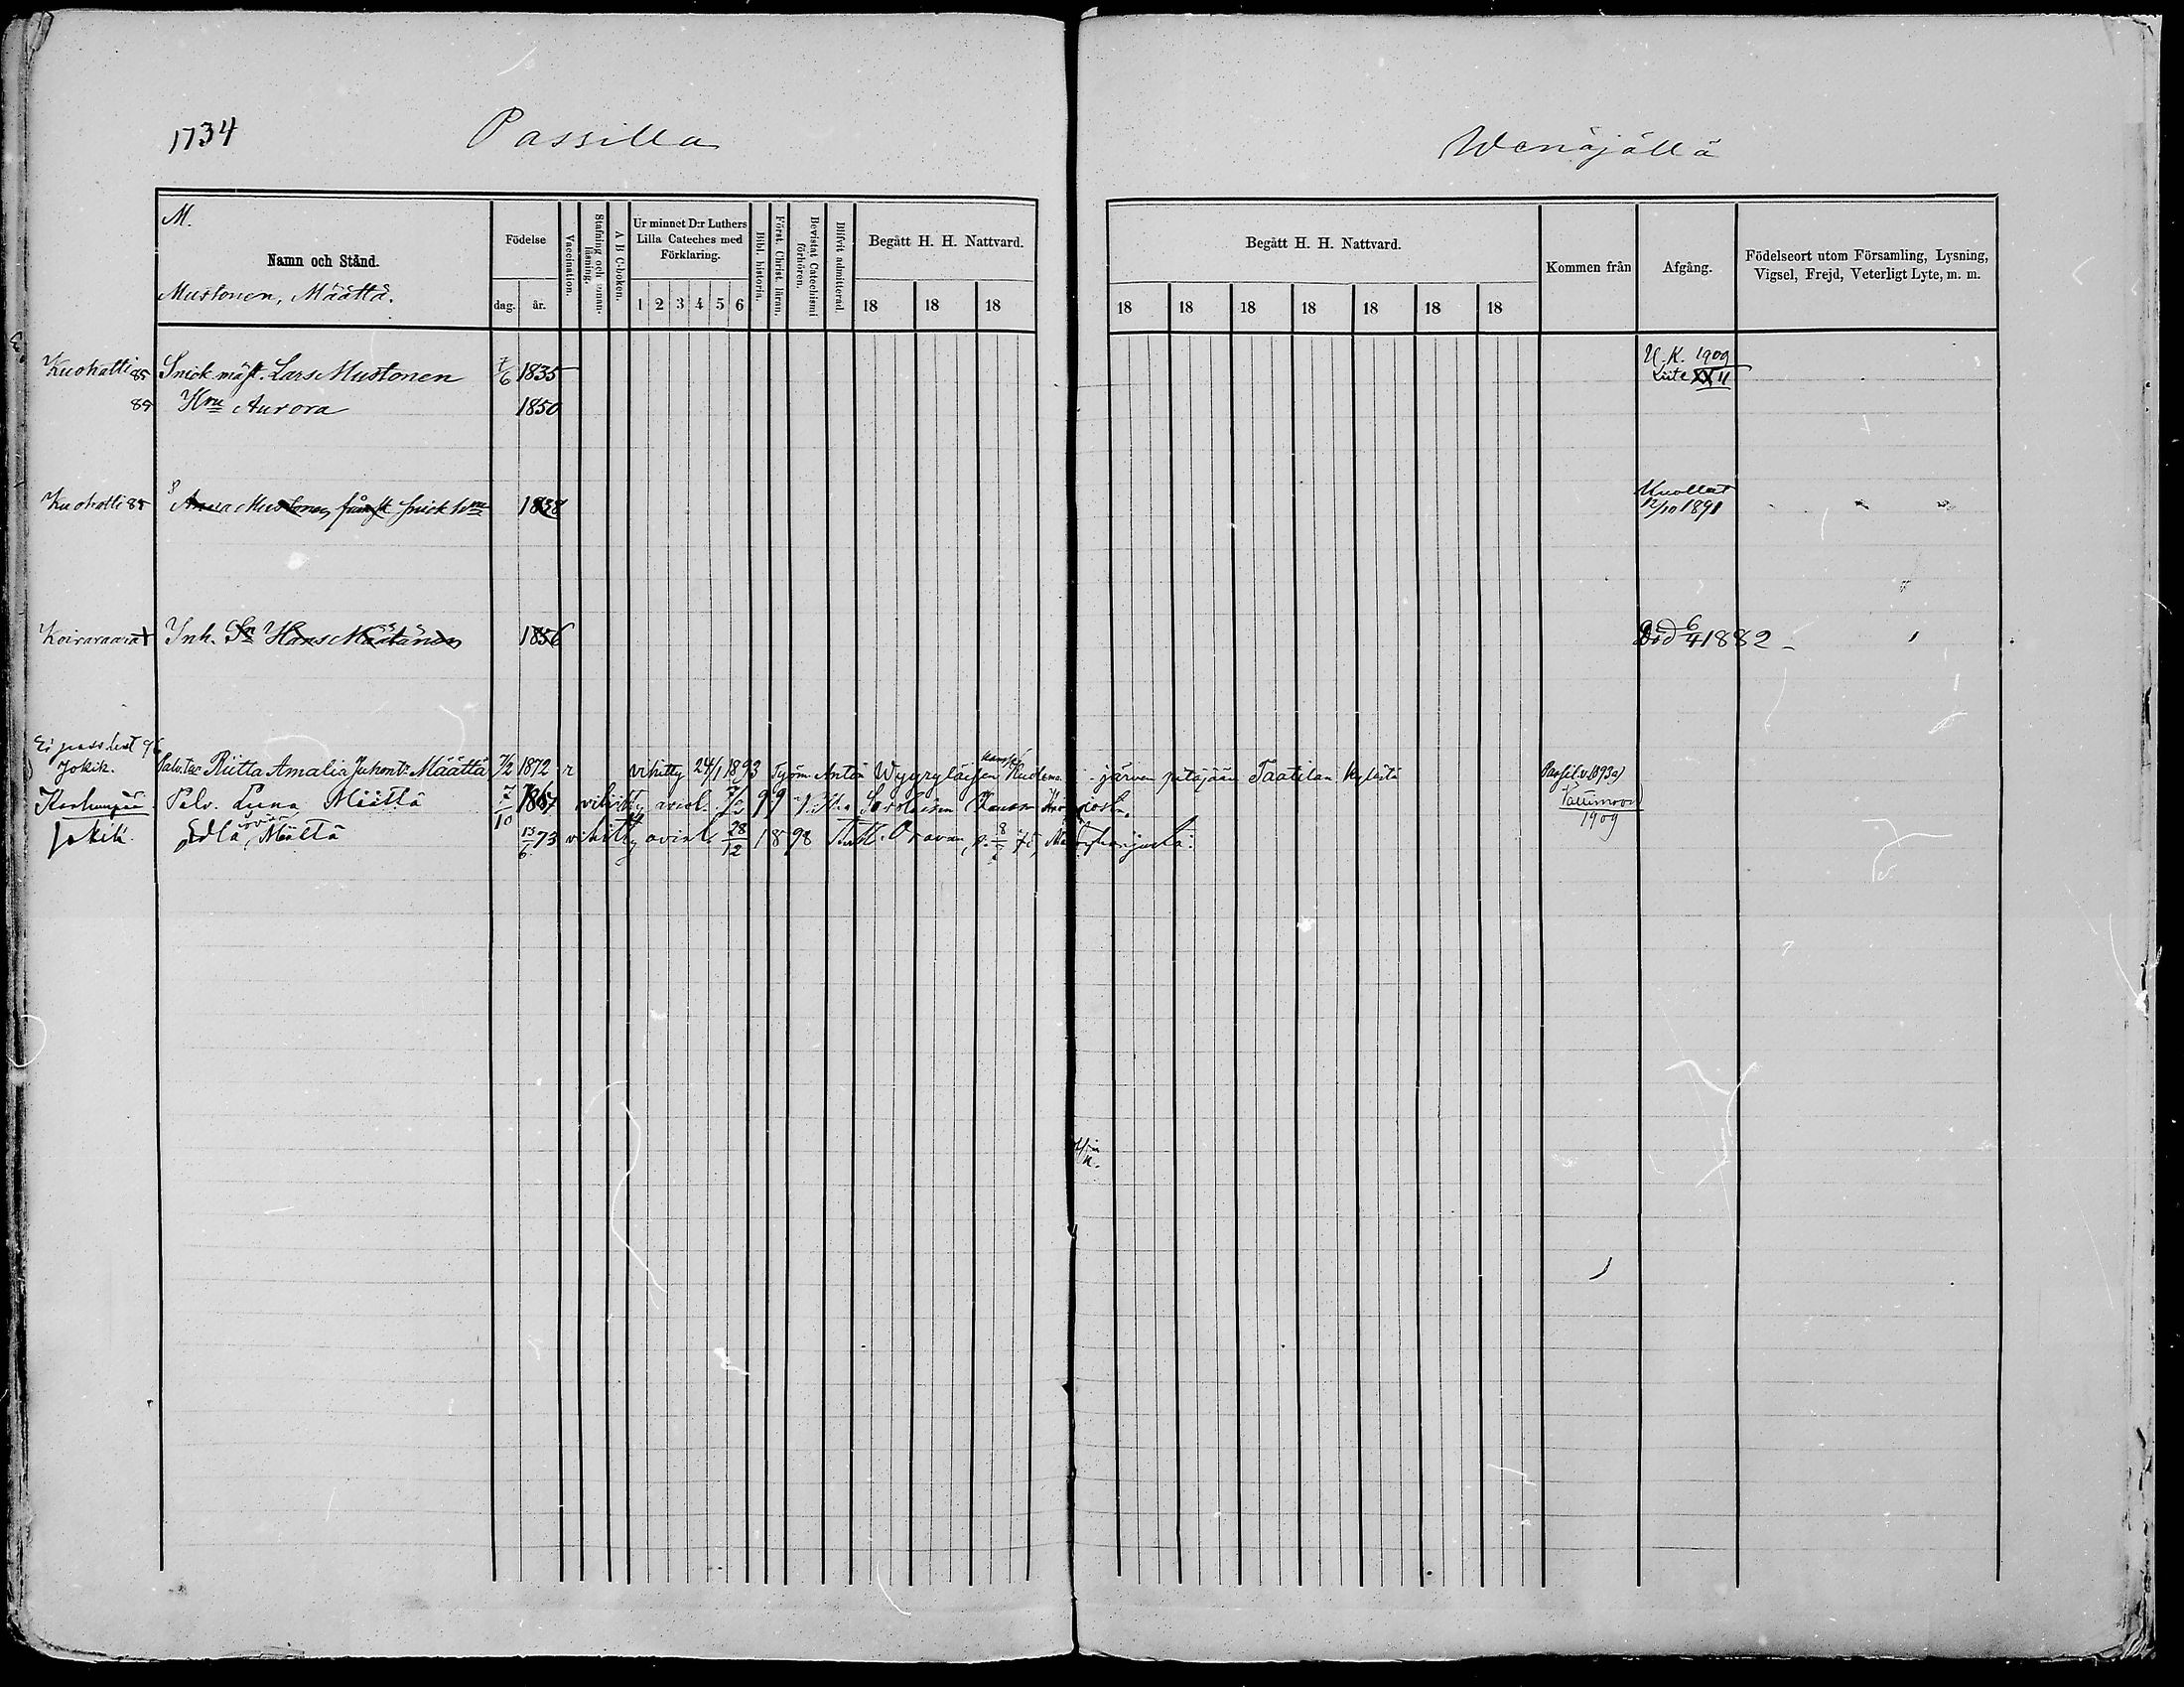 1734 Passilla Wenäjällä
M.
Namn och Stånd.
Mustonen, Määttä.
Födelse
dag. år.
Vaccination.
Stafning och innanläsning.
A B C-boken.
Ur minnet D:r Luthers Lilla Cateches med Förklaring.
1 2 3 4 5 6
Bibl. historia.
Först. Christ. läran.
Bevistat Catechismi förhören.
Blifvit admitterad.
Begått H. H. Nattvard.
18 18 18
Begått H. H. Nattvard.
18 18 18 18 18 18 18
Kommen från
Afgång.
Födelseort utom Församling, Lysning, Vigsel, Frejd, Veterligt Lyte, m. m.
Kuohatti 85 Snick. mäst. Lars Mustonen 7/6 1835 U. K. 1909 Liite XX 11
85 Hru Aurora 1850
Kuohatti 85 Anna Mustonen 1838 Kuollut 12/10 1891
Koivuvaara Inh. Sn Hans Määtänen 1856 Död 6/4 1882
Ei pass. 96
Jokik. Riitta Amalia Juhont. Määttä 7/2 1872 r vihitty 24/1 1893 Työm. Anton Wyyryläisen kanssa järven pitäjään Taatilan kylästä Passil. v. 1893 a)
Palv. Liina Määttä 7/10 1867 vihitty aviol. 99 1909
Jokik. Edla Määttä 13/6 73 vihitty aviol. 28/12 1898 Oravan